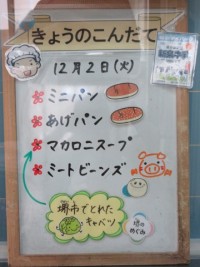 きょうのこんだて
12月2日(火)
ミニパン
あげパン
マカロニスープ
ミートビーンズ
堺市でとれた
キャベツ
堺の
めぐみ